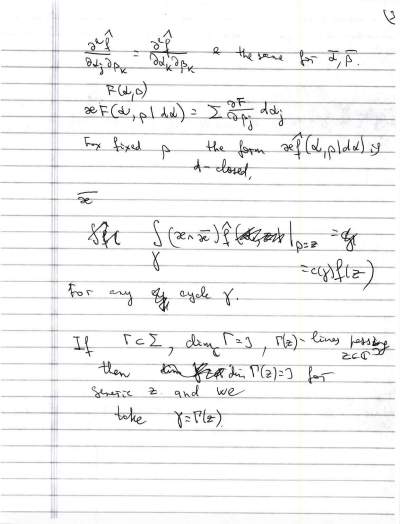 (2
∂²f̂/∂α_j∂β_k = ∂²f̂/∂α_k∂β_j & the same for ᾱ, β̄.
F(α,β)
æF(α,β|dα) = Σ ∂F/∂β_j dα_j
For fixed β the form æf̂(α,β|dα) is
d-closed.
ǣ
∫_γ (æ∧ǣ) f̂ |_{β=z} =
= c(γ)f(z)
For any cycle γ.
If Γ⊂Σ, dim_ℂ Γ=3, Γ(z)-lines passing
then dim Γ(z)= for
generic z and we
take γ=Γ(z)